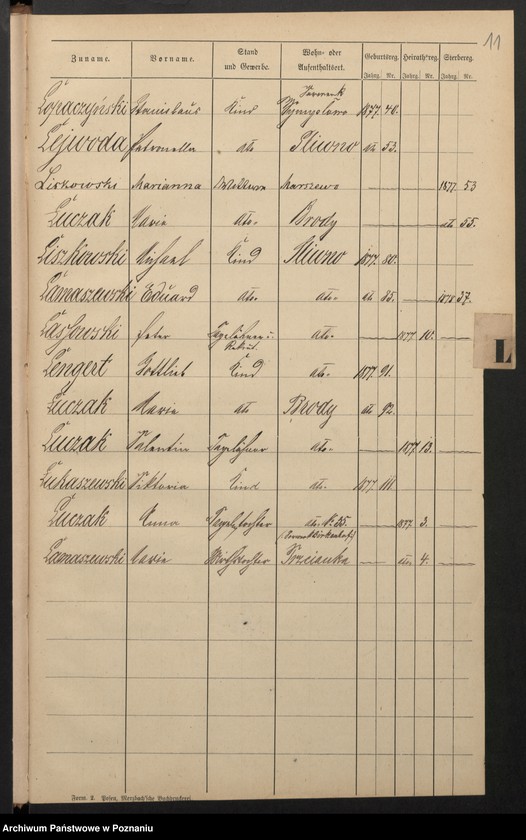 11
Zuname. Vorname. Stand und Gewerbe. Wohn- oder Aufenthaltsort. Geburtsreg. Heirathsreg. Sterbereg.
Jahrg. Nr. Jahrg. Nr. Jahrg. Nr.
Vorwerk
Łopaczyński Stanislaus Kind Wymyslowo 1877. 40.
Lejwoda Petronella dto Sliwno dto 53.
Liskowski Marianna Wittwe Marszewo 1877 53
Łuczak Marie dto. Brody dto 55.
Liszkowski Michael Kind Sliwno 1877. 80.
Łamaszewski Eduard dto. dto. dto 85. 1878 37.
Peter dto. 1877 10.
Lengert Gottlieb Kind dto. 1877. 91.
Łuczak Marie dto Brody dto 92.
Łuczak Valentin Tagelöhner dto. 1877. 13.
Łukaszewski Viktoria Kind dto. 1877. 111
Łuczak Anna dto. N: 35. 1877. 3.
Łamaszewski Marie Trzcianka dto. 4.
L
Form. 2. Posen, Merzbach'sche Buchdruckerei
Archiwum Państwowe w Poznaniu